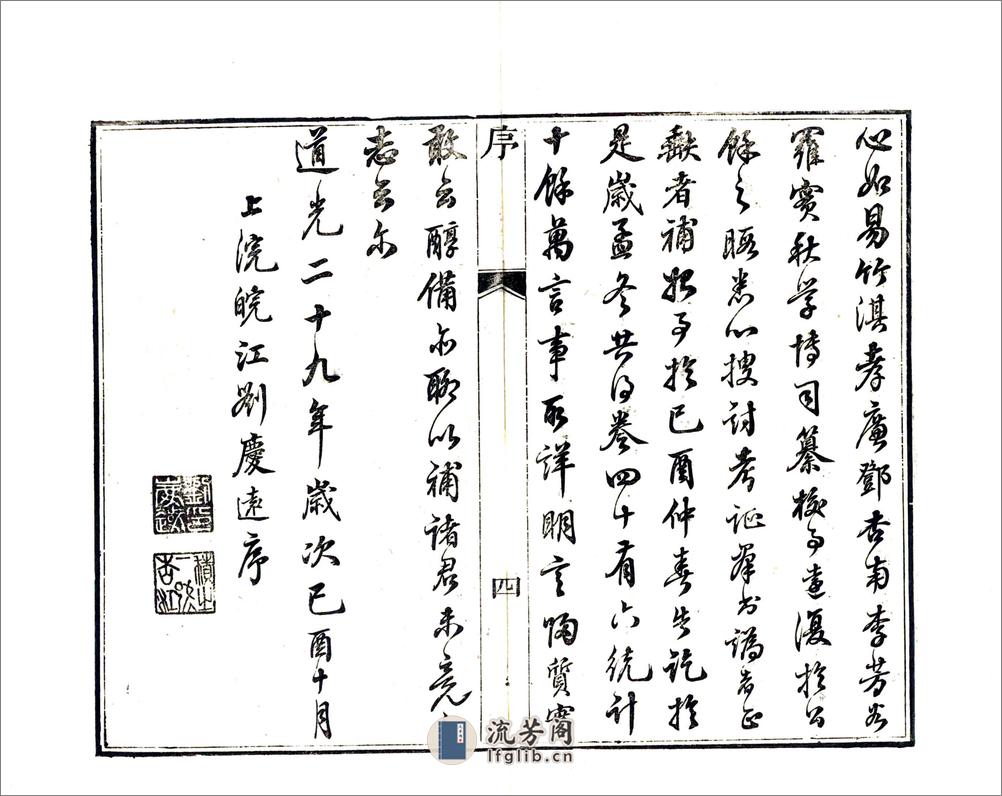 心如易竹淇孝廉鄧杏南李芳谷
羅實秋学博司纂校事遠復於公
餘之暇悉心搜討考证羣书譌者正
缺者補始事於己酉仲春告訖於
是歲孟冬共得卷四十有六統計
十餘萬言事取詳明言归質實
序
四
敢云醇備亦聊以補諸君未竟之
志云尔
道光二十九年歲次己酉十月
上浣皖江劉慶遠序
流芳閣
lfglib.cn